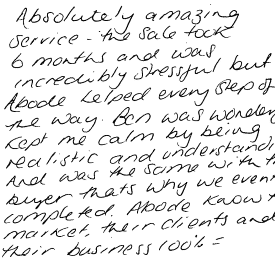 Absolutely amazing
service - the sale took
6 months and was
incredibly stressful but
Abode helped every step of
the way. Ben was wonder
kept me calm by being
realistic and understandi
And was the same with t
buyer thats why we even
completed. Abode know t
market, their clients and
their business 100% =